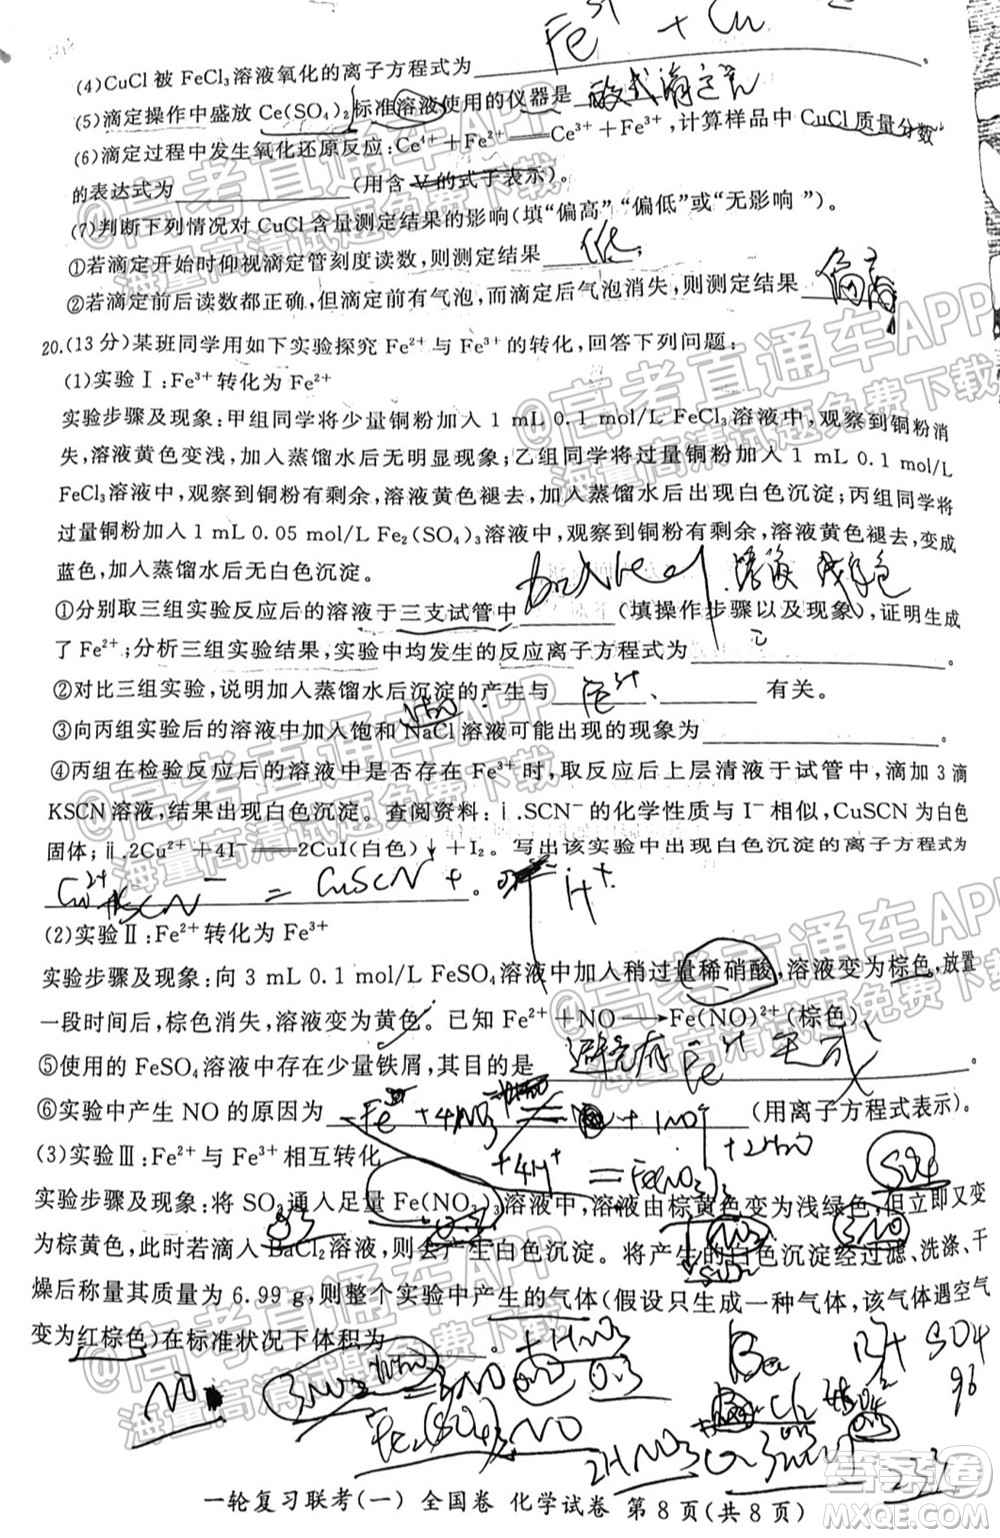 Fe³⁺ + Cu
(4)CuCl 被 FeCl₃溶液氧化的离子方程式为____。
(5)滴定操作中盛放 Ce(SO₄)₂标准溶液使用的仪器是 酸式滴定管
(6)滴定过程中发生氧化还原反应:Ce⁴⁺+Fe²⁺══Ce³⁺+Fe³⁺,计算样品中 CuCl 质量分数
的表达式为____(用含 V 的式子表示)。
(7)判断下列情况对 CuCl 含量测定结果的影响(填“偏高”“偏低”或“无影响”)。
①若滴定开始时仰视滴定管刻度读数,则测定结果 低。
②若滴定前后读数都正确,但滴定前有气泡,而滴定后气泡消失,则测定结果 偏高
20.(13 分)某班同学用如下实验探究 Fe²⁺ 与 Fe³⁺ 的转化,回答下列问题:
(1)实验Ⅰ:Fe³⁺转化为 Fe²⁺
实验步骤及现象:甲组同学将少量铜粉加入 1 mL 0.1 mol/L FeCl₃溶液中,观察到铜粉消
失,溶液黄色变浅,加入蒸馏水后无明显现象;乙组同学将过量铜粉加入 1 mL 0.1 mol/L
FeCl₃溶液中,观察到铜粉有剩余,溶液黄色褪去,加入蒸馏水后出现白色沉淀;丙组同学将
过量铜粉加入 1 mL 0.05 mol/L Fe₂(SO₄)₃溶液中,观察到铜粉有剩余,溶液黄色褪去,变成
蓝色,加入蒸馏水后无白色沉淀。
①分别取三组实验反应后的溶液于三支试管中____(填操作步骤以及现象),证明生成
了 Fe²⁺;分析三组实验结果,实验中均发生的反应离子方程式为____。
②对比三组实验,说明加入蒸馏水后沉淀的产生与 Fe³⁺、____有关。
③向丙组实验后的溶液中加入饱和 NaCl 溶液可能出现的现象为____。
④丙组在检验反应后的溶液中是否存在 Fe³⁺时,取反应后上层清液于试管中,滴加 3 滴
KSCN 溶液,结果出现白色沉淀。查阅资料:ⅰ.SCN⁻的化学性质与 I⁻相似,CuSCN 为白色
固体;ⅱ.2Cu²⁺+4I⁻══2CuI(白色)↓+I₂。写出该实验中出现白色沉淀的离子方程式为
Cu²⁺ + SCN⁻ = CuSCN + 。
(2)实验Ⅱ:Fe²⁺转化为 Fe³⁺
实验步骤及现象:向 3 mL 0.1 mol/L FeSO₄溶液中加入稍过量稀硝酸,溶液变为棕色,放置
一段时间后,棕色消失,溶液变为黄色。已知 Fe²⁺+NO⟶Fe(NO)²⁺(棕色)。
⑤使用的 FeSO₄溶液中存在少量铁屑,其目的是 避免有 Fe³⁺ 生成。
⑥实验中产生 NO 的原因为____(用离子方程式表示)。
(3)实验Ⅲ:Fe²⁺与 Fe³⁺相互转化
实验步骤及现象:将 SO₂通入足量 Fe(NO₃)₃溶液中,溶液由棕黄色变为浅绿色,但立即又变
为棕黄色,此时若滴入 BaCl₂溶液,则会产生白色沉淀。将产生的白色沉淀经过滤、洗涤、干
燥后称量其质量为 6.99 g,则整个实验中产生的气体(假设只生成一种气体,该气体遇空气
变为红棕色)在标准状况下体积为____
NO
SO4
96
233
一轮复习联考(一) 全国卷 化学试卷 第 8 页(共 8 页)
@高考直通车APP
海量高清试题免费下载
答案圈
MXQE.COM